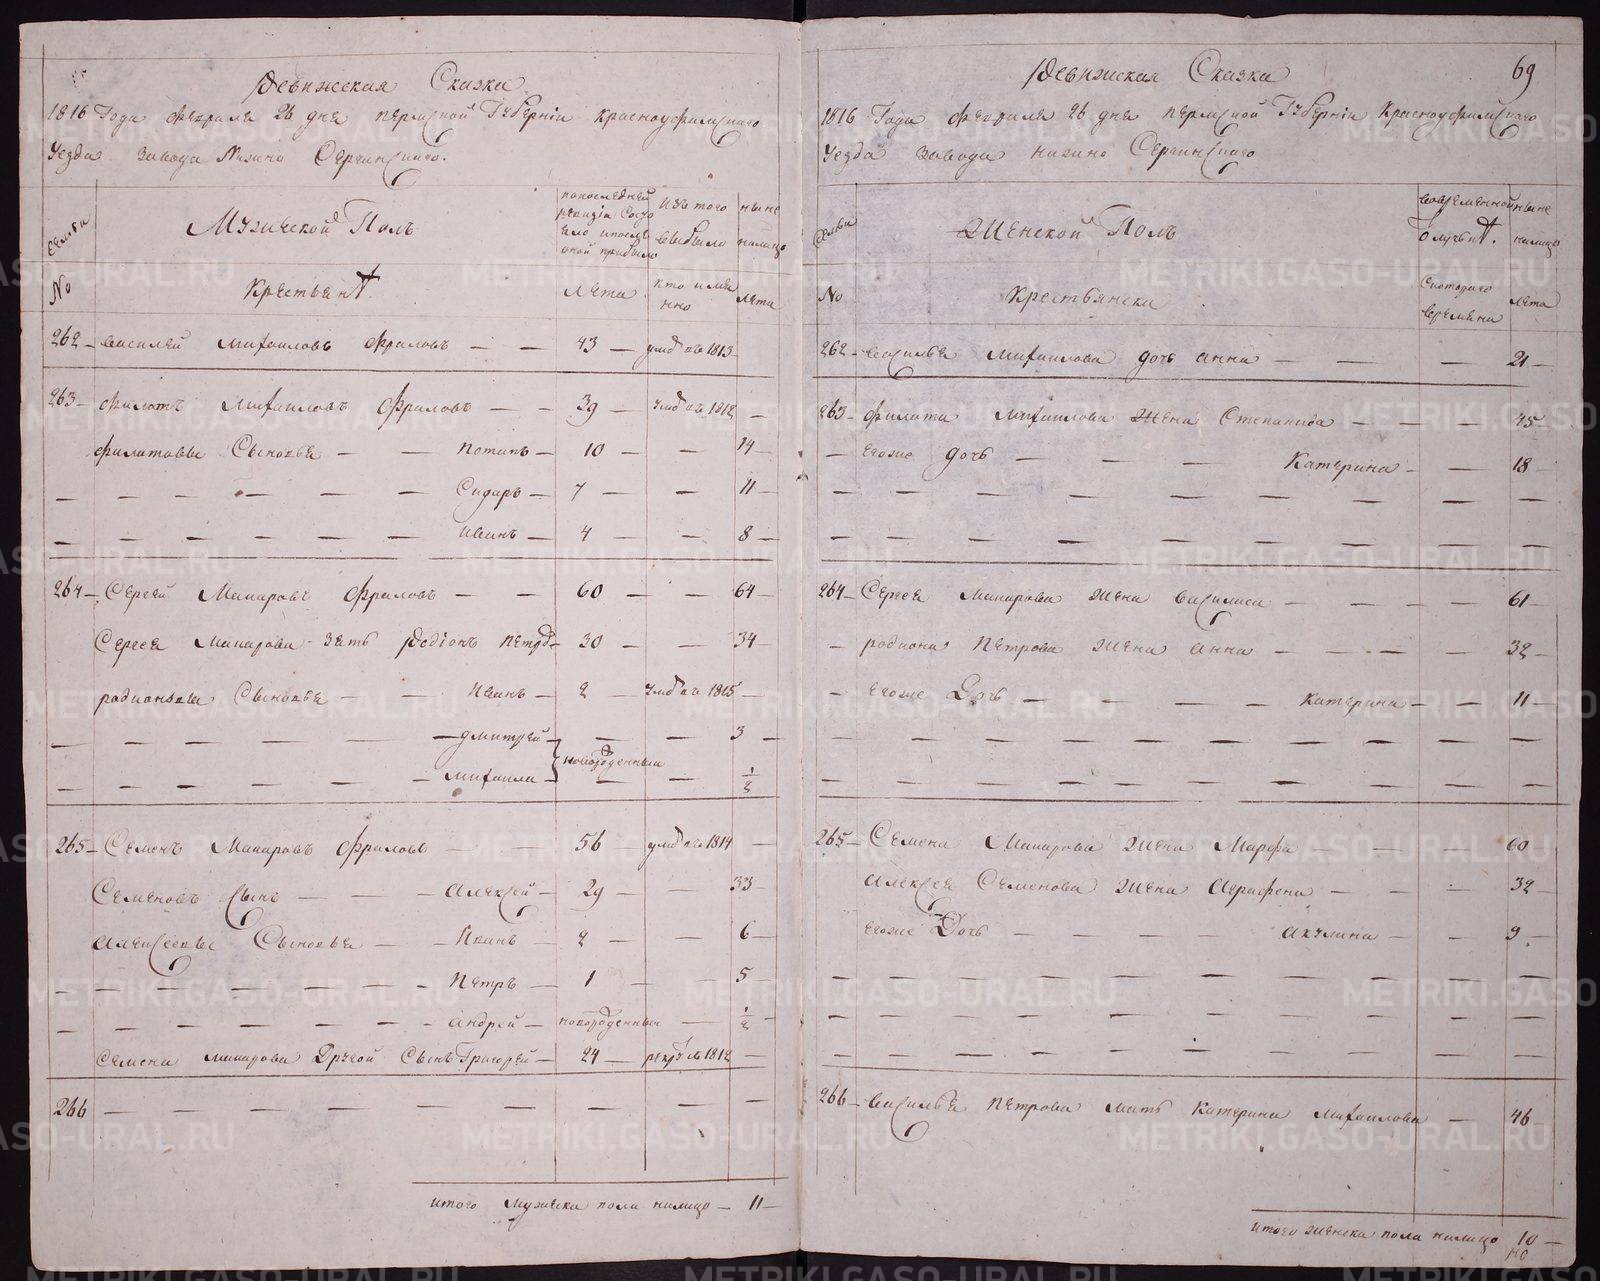 Ревижская Сказка
1816 Года февраля 26 дня пермской Губернiи Красноуфимскаго
Уезда завода Нижно Сергинскаго.
Семьи
Мужической Полъ
попоследней ревизiи Состояло ипосле оной прибыло
изъ того выбыло
ныне налицо
No
Крестьянъ
Лета
кто имянно
лета
262 – василей михаиловъ Фраловъ — — 43 — умбъ въ 1813
263 – филатъ михаиловъ Фраловъ — — 39 — умбъ въ 1812 —
филатовы Сыновья — — потапъ — 10 — — 14 —
— — — — — — Сидаръ — 7 — — 11 —
— — — — — — иванъ — 4 — — 8 —
264 – Сергей Макаровъ Фраловъ — — 60 — — 64 —
Сергея макарова зять Родiонъ петровъ 30 — — 34 —
радионовы Сыновья — — Иванъ — 2 — умбъ въ 1815 —
— — — — — — дмитрей — — — 3 —
новорожденныи
— — — — — — михаила — — — 1/2
265 – Семенъ Макаровъ Фраловъ — — 56 умбъ въ 1814 —
Семеновъ Сынъ — — — Алексей — 29 — — 33 —
Алексеевы Сыновья — — Иванъ — 2 — — 6 —
— — — — — — — Петръ — 1 — — 5 —
— — — — — — — андрей — новорожденныи — 1/2 —
Семена макарова Другой Сынъ Григорей — 24 — рекру въ 1812 —
266 — — — — — — — — — —
итого мужеска пола налицо — 11 —
69
Ревижская Сказка
1816 Года февраля 26 дня пермской Губернiи Красноуфимскаго
Уезда завода нижно Сергинскаго
Семьи
Женской Полъ
вовременной отлучьке
ныне налицо
No
Крестьянска
Скотораго времяни
лета
262 – василья михаилова дочь анна — — — 21 —
263 – филата михаилова жена Степанида — — — 45 —
— егоже дочь — — — Катерина — — 18 —
— — — — — — — — — — —
— — — — — — — — — — —
264 – Сергея макарова жена василиса — — — — 61 —
— родиона Петрова жена анна — — — — 32 —
— егоже Дочь — — — — Катерина — — 11 —
— — — — — — — — — — —
— — — — — — — — — — —
265 – Семена Макарова жена Марфа — — — 60 —
Алексея Семенова жена Аграфена — — — 32 —
егоже Дочь — — — — акулина — — 9 —
— — — — — — — — — — —
— — — — — — — — — — —
— — — — — — — — — — —
266 – василья петрова мать Катерина михаилова — 46 —
итого женска пола налицо 10 —
METRIKI.GASO-URAL.RU